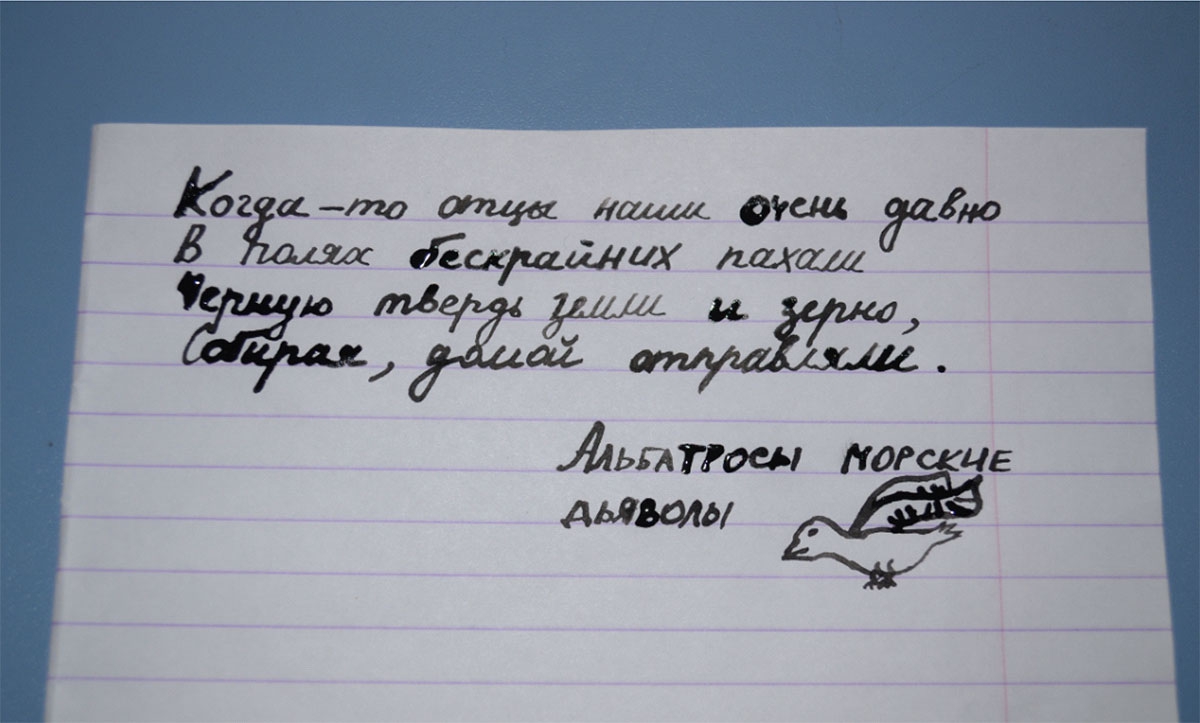 Когда-то отцы наши очень давно
В полях бескрайних пахали
Черную твердь земли и зерно,
Собирая, домой отправляли.
Альбатросы морские
дьяволы